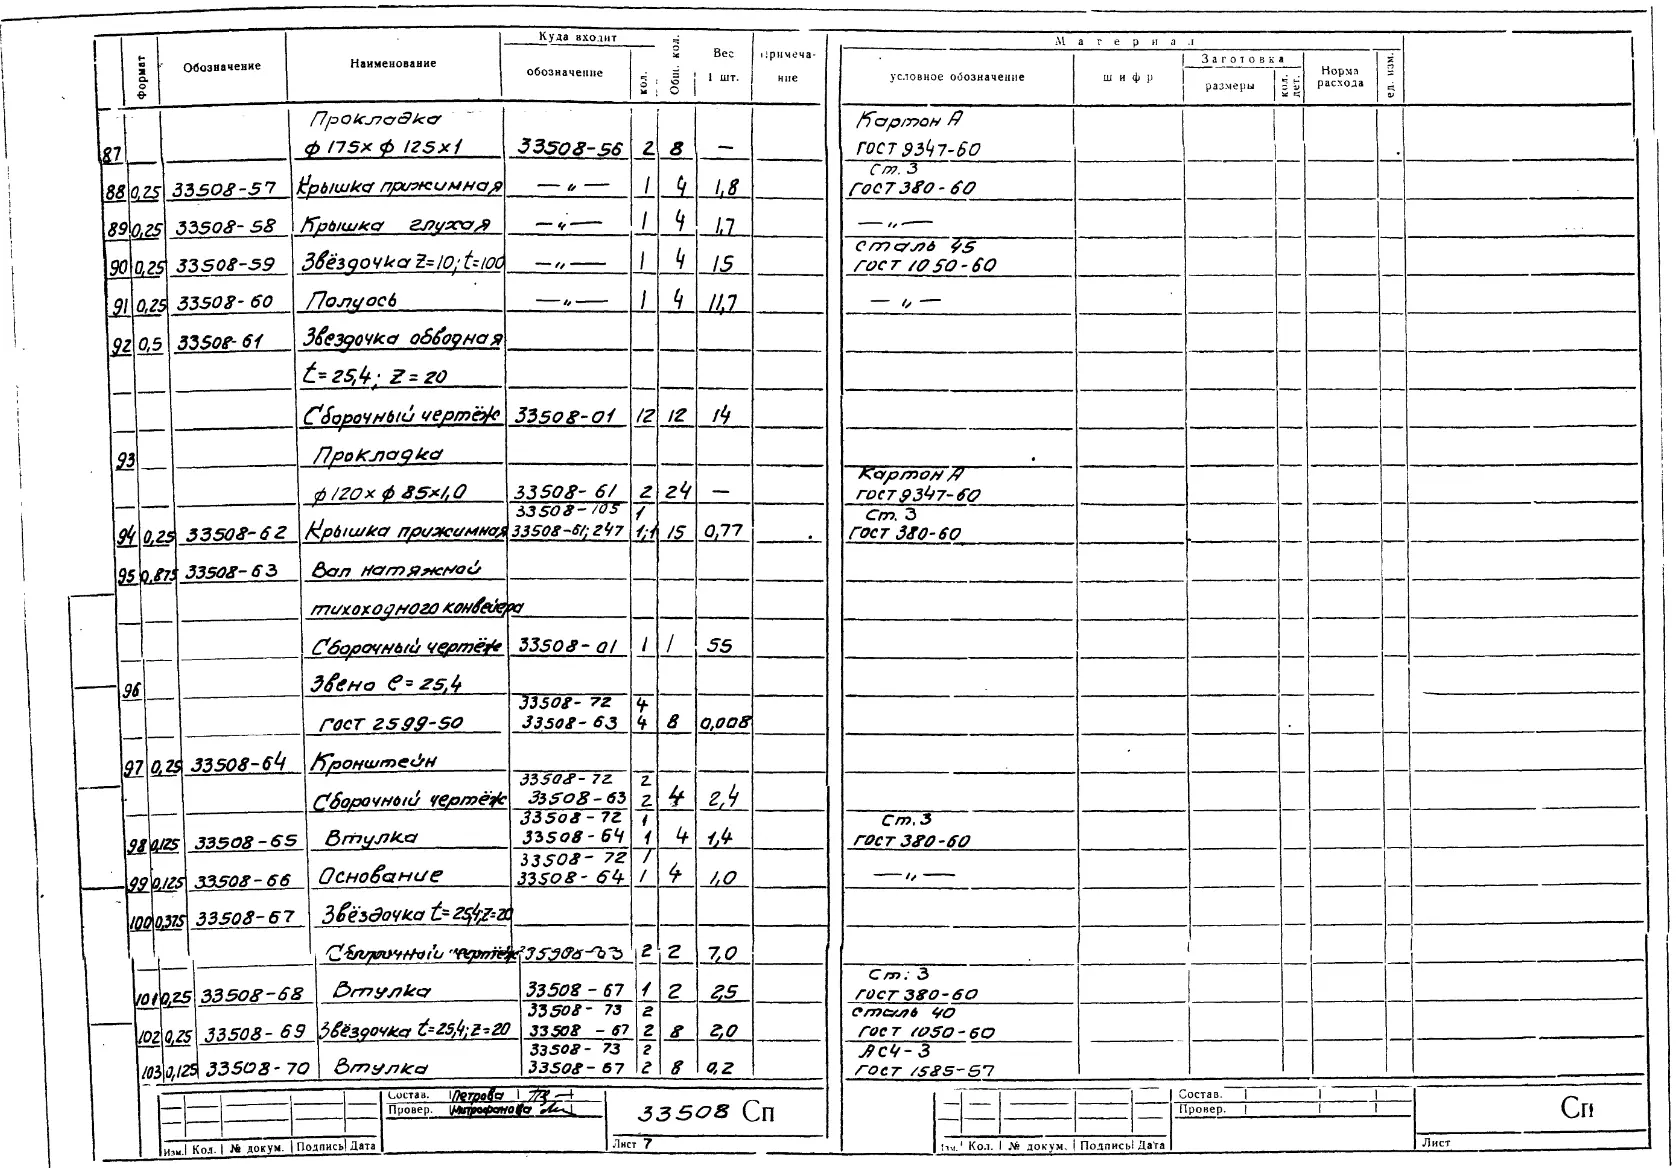 Формат Обозначение Наименование Куда входит обозначение кол. Общ. кол. Вес 1 шт. Примечание
Материал условное обозначение шифр Заготовка размеры кол. дет. Норма расхода ед. изм.
Прокладка Картон А
87 ф 175х ф 125х1 33508-56 2 8 — ГОСТ 9347-60
Ст. 3
88 0,25 33508-57 Крышка прижимная —〃— 1 4 1,8 ГОСТ 380-60
89 0,25 33508-58 Крышка глухая —〃— 1 4 1,7 —〃—
Сталь 45
90 0,25 33508-59 Звёздочка Z=10; t=100 —〃— 1 4 15 ГОСТ 1050-60
91 0,25 33508-60 Полуось —〃— 1 4 11,7 —〃—
92 0,5 33508-61 Звездочка обводная
t=25,4; Z=20
Сборочный чертёж 33508-01 12 12 14
93 Прокладка
Картон А
ф 120х ф 85х1,0 33508-61 2 24 — ГОСТ 9347-60
33508-105 1 Ст. 3
94 0,25 33508-62 Крышка прижимная 33508-61; 247 1;1 15 0,77 ГОСТ 380-60
95 0,875 33508-63 Вал натяжной
тихоходного конвейера
Сборочный чертёж 33508-01 1 1 55
96 Звено e=25,4
33508-72 4
ГОСТ 2599-50 33508-63 4 8 0,008
97 0,25 33508-64 Кронштейн
33508-72 2
Сборочный чертёж 33508-63 2 4 2,4
33508-72 1 Ст. 3
98 0,125 33508-65 Втулка 33508-64 1 4 1,4 ГОСТ 380-60
33508-72 1
99 0,125 33508-66 Основание 33508-64 1 4 1,0 —〃—
100 0,375 33508-67 Звёздочка t=25,4; Z=20
Сборочный чертёж 2 2 7,0
Ст. 3
101 0,25 33508-68 Втулка 33508-67 1 2 2,5 ГОСТ 380-60
33508-73 2 Сталь 40
102 0,25 33508-69 Звёздочка t=25,4; Z=20 33508-67 2 8 2,0 ГОСТ 1050-60
33508-73 2 АСЧ-3
103 0,125 33508-70 Втулка 33508-67 2 8 0,2 ГОСТ 1585-57
Состав. Петрова
Провер. Митрофанова
33508 Сп
Изм. Кол. № докум. Подпись Дата Лист 7
Состав.
Провер.
Сп
Изм. Кол. № докум. Подпись Дата Лист